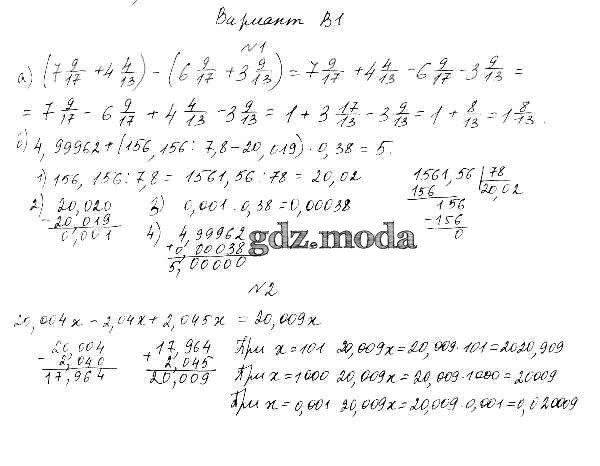 Вариант В1
№1
а) (7 9/17 + 4 4/13) - (6 9/17 + 3 9/13) = 7 9/17 + 4 4/13 - 6 9/17 - 3 9/13 =
= 7 9/17 - 6 9/17 + 4 4/13 - 3 9/13 = 1 + 3 17/13 - 3 9/13 = 1 + 8/13 = 1 8/13.
б) 4,99962 + (156,156 : 7,8 - 20,019) · 0,38 = 5.
1) 156,156 : 7,8 = 1561,56 : 78 = 20,02
1561,56 | 78
156 20,02
156
-156
0
2) 20,020
- 20,019
0,001
3) 0,001 · 0,38 = 0,00038
4) 4,99962
+ 0,00038
5,00000
gdz.moda
№2
20,004x - 2,04x + 2,045x = 20,009x
- 20,004
2,040
17,964
+ 17,964
2,045
20,009
При x = 101 20,009x = 20,009 · 101 = 2020,909
При x = 1000 20,009x = 20,009 · 1000 = 20009
При x = 0,001 20,009x = 20,009 · 0,001 = 0,020009